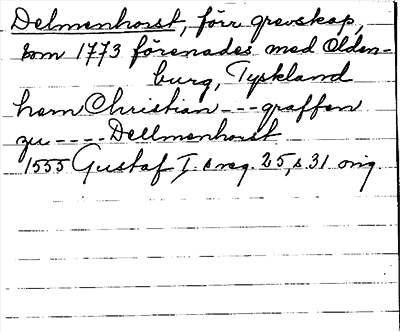 Delmenhorst, förr grevskap,
som 1773 förenades med Olden-
burg, Tyskland
hern Christian --- graffen
zu ---- Dellmenhorst
1555 Gustaf I:s reg. 25, s 31 orig.